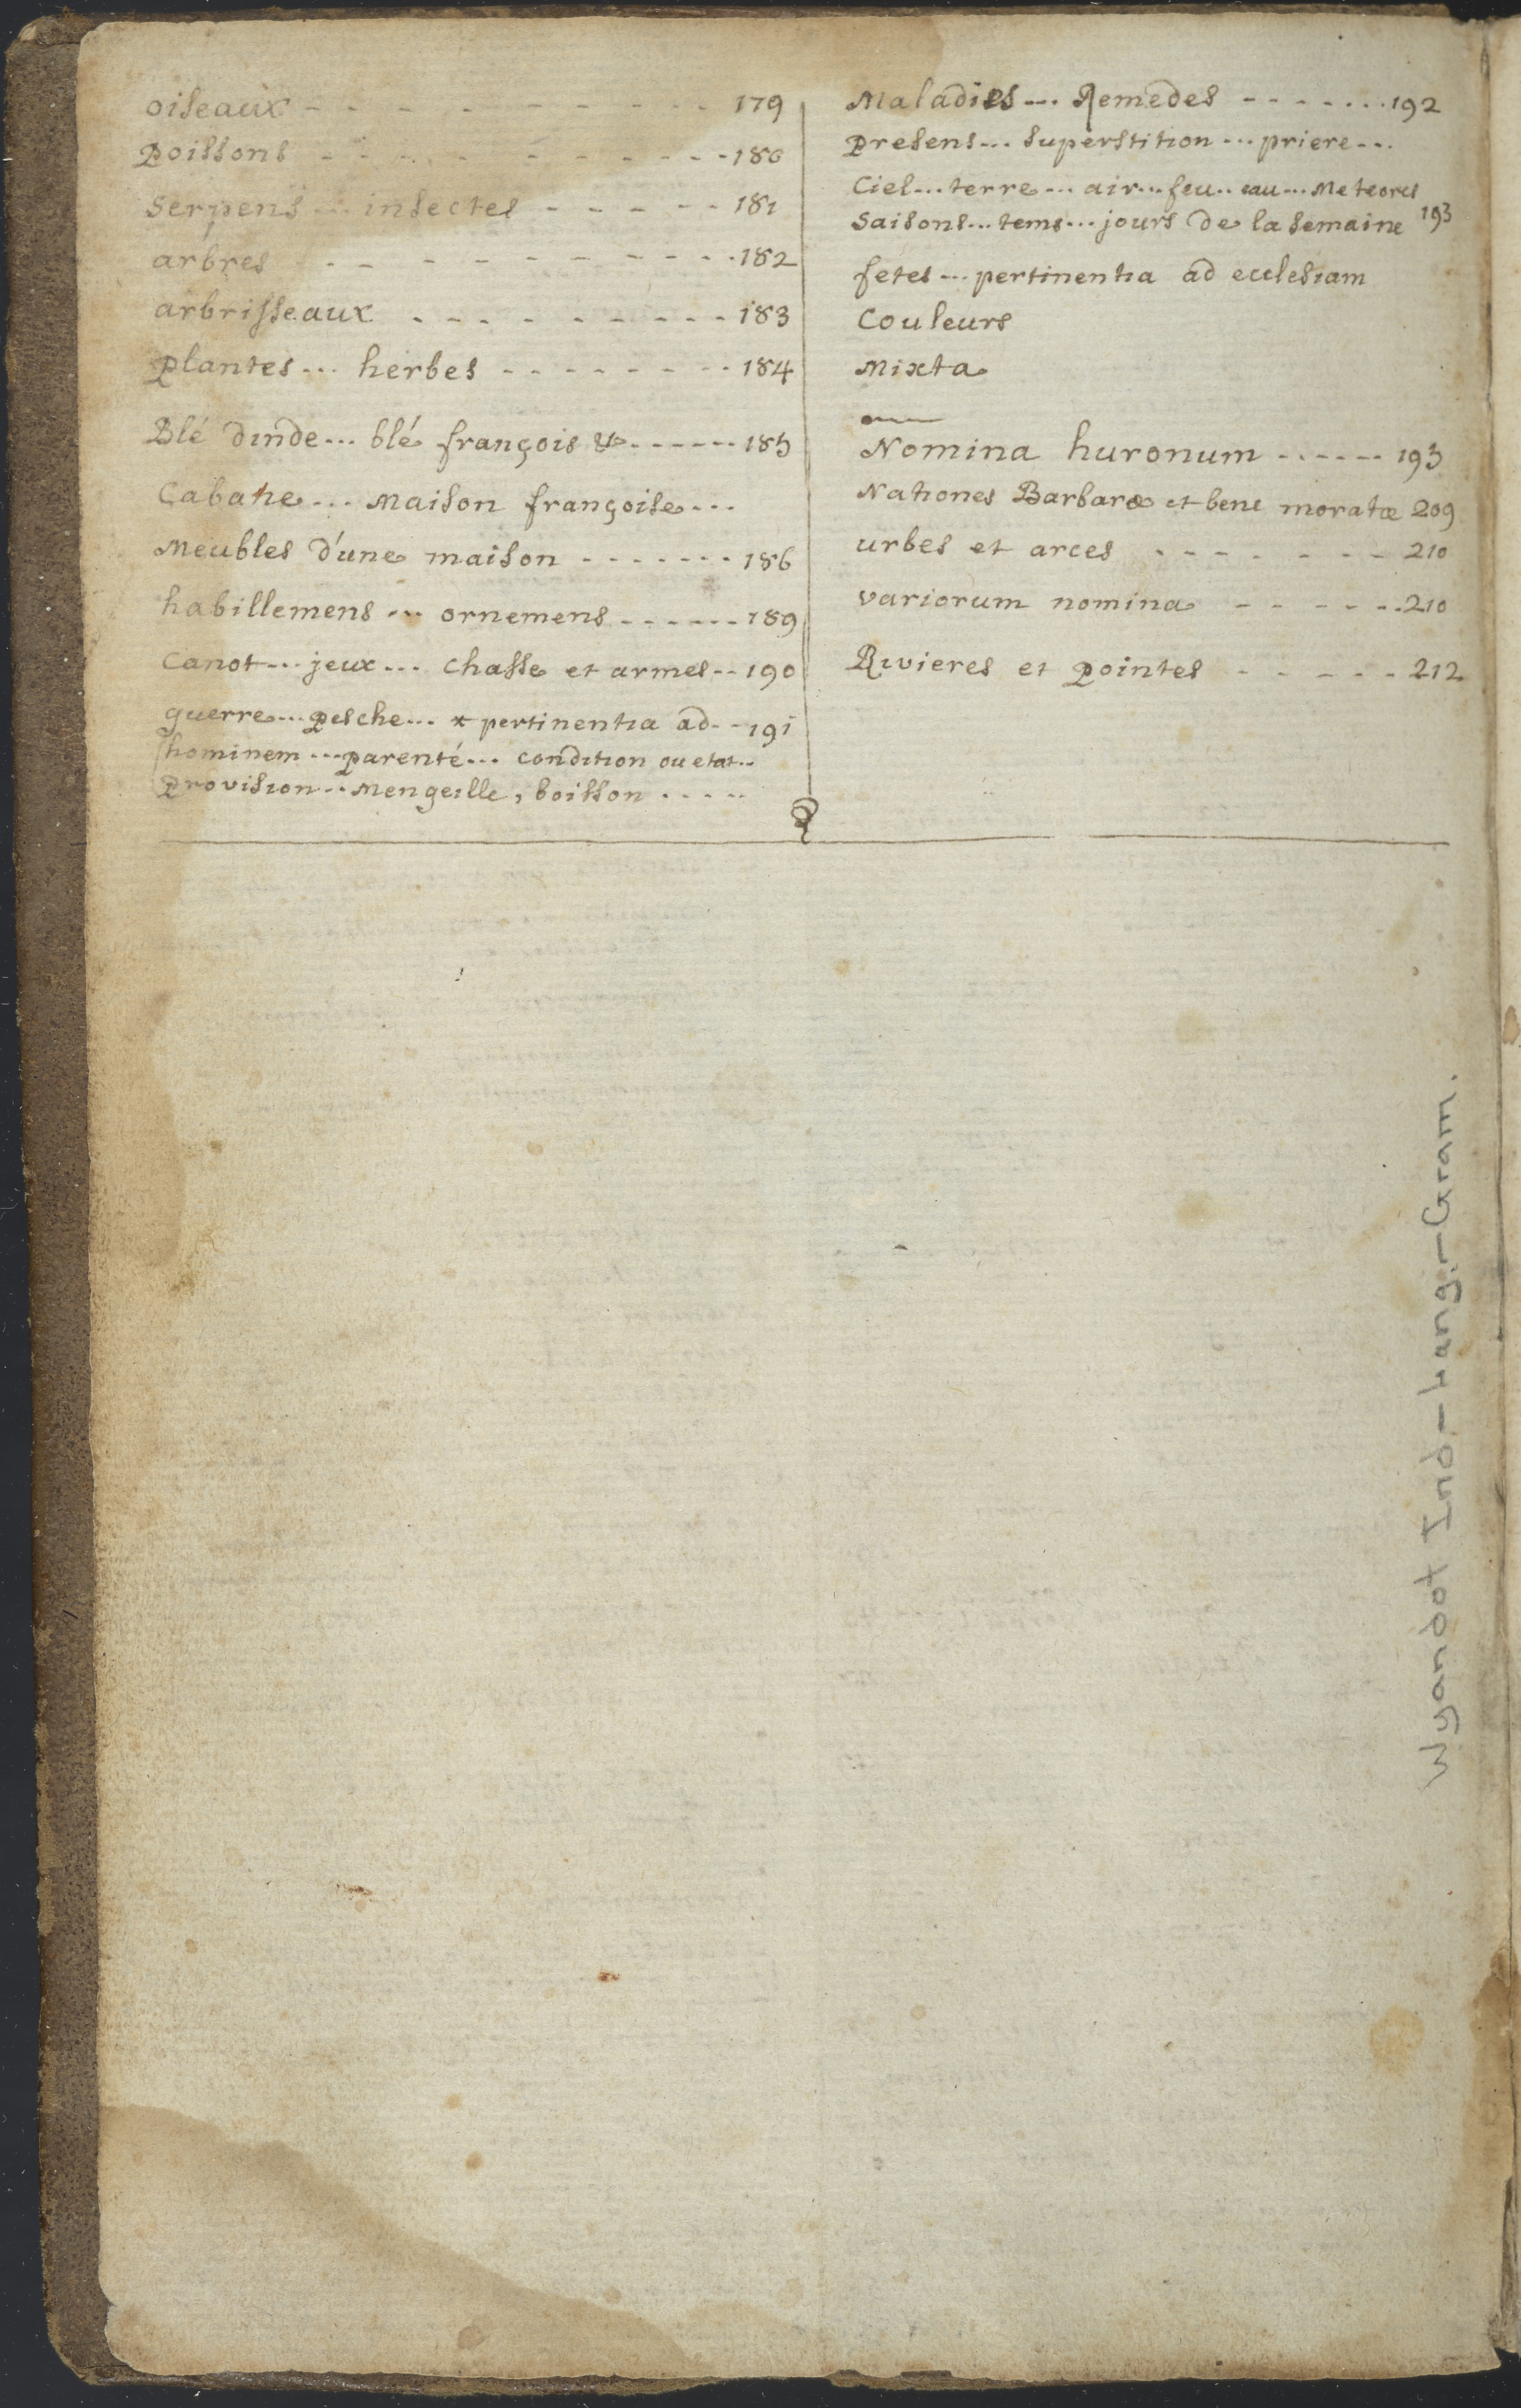 oiseaux - - - - - - - - - 179
poissons - - - - - - - - - 180
serpens ... insectes - - - - - 181
arbres - - - - - - - - - 182
arbrisseaux - - - - - - - - 183
plantes ... herbes - - - - - - - - 184
Blé dinde ... blé françois & - - - - - - 185
Cabane ... Maison françoise ...
Meubles d'une maison - - - - - - - 186
habillemens ... ornemens - - - - - - 189
Canot ... jeux ... chasse et armes - - 190
guerre ... pesche ... * pertinentia ad - - 191
hominem ... parenté ... condition ou etat ...
provision ... Mengeille, boisson . . . . .
Maladies ... Remedes - - - - - - - 192
presens ... superstition ... priere ...
Ciel ... terre ... air ... feu .. eau ... Meteores
Saisons ... tems ... jours de la semaine 193
fetes ... pertinentia ad ecclesiam
Couleurs
Mixta
Nomina huronum - - - - - - 193
Nationes Barbaræ et bene moratæ 209
urbes et arces - - - - - - - 210
variorum nomina - - - - - - 210
Rivieres et pointes - - - - - 212
Wyandot Ind-Lang.-Gram.